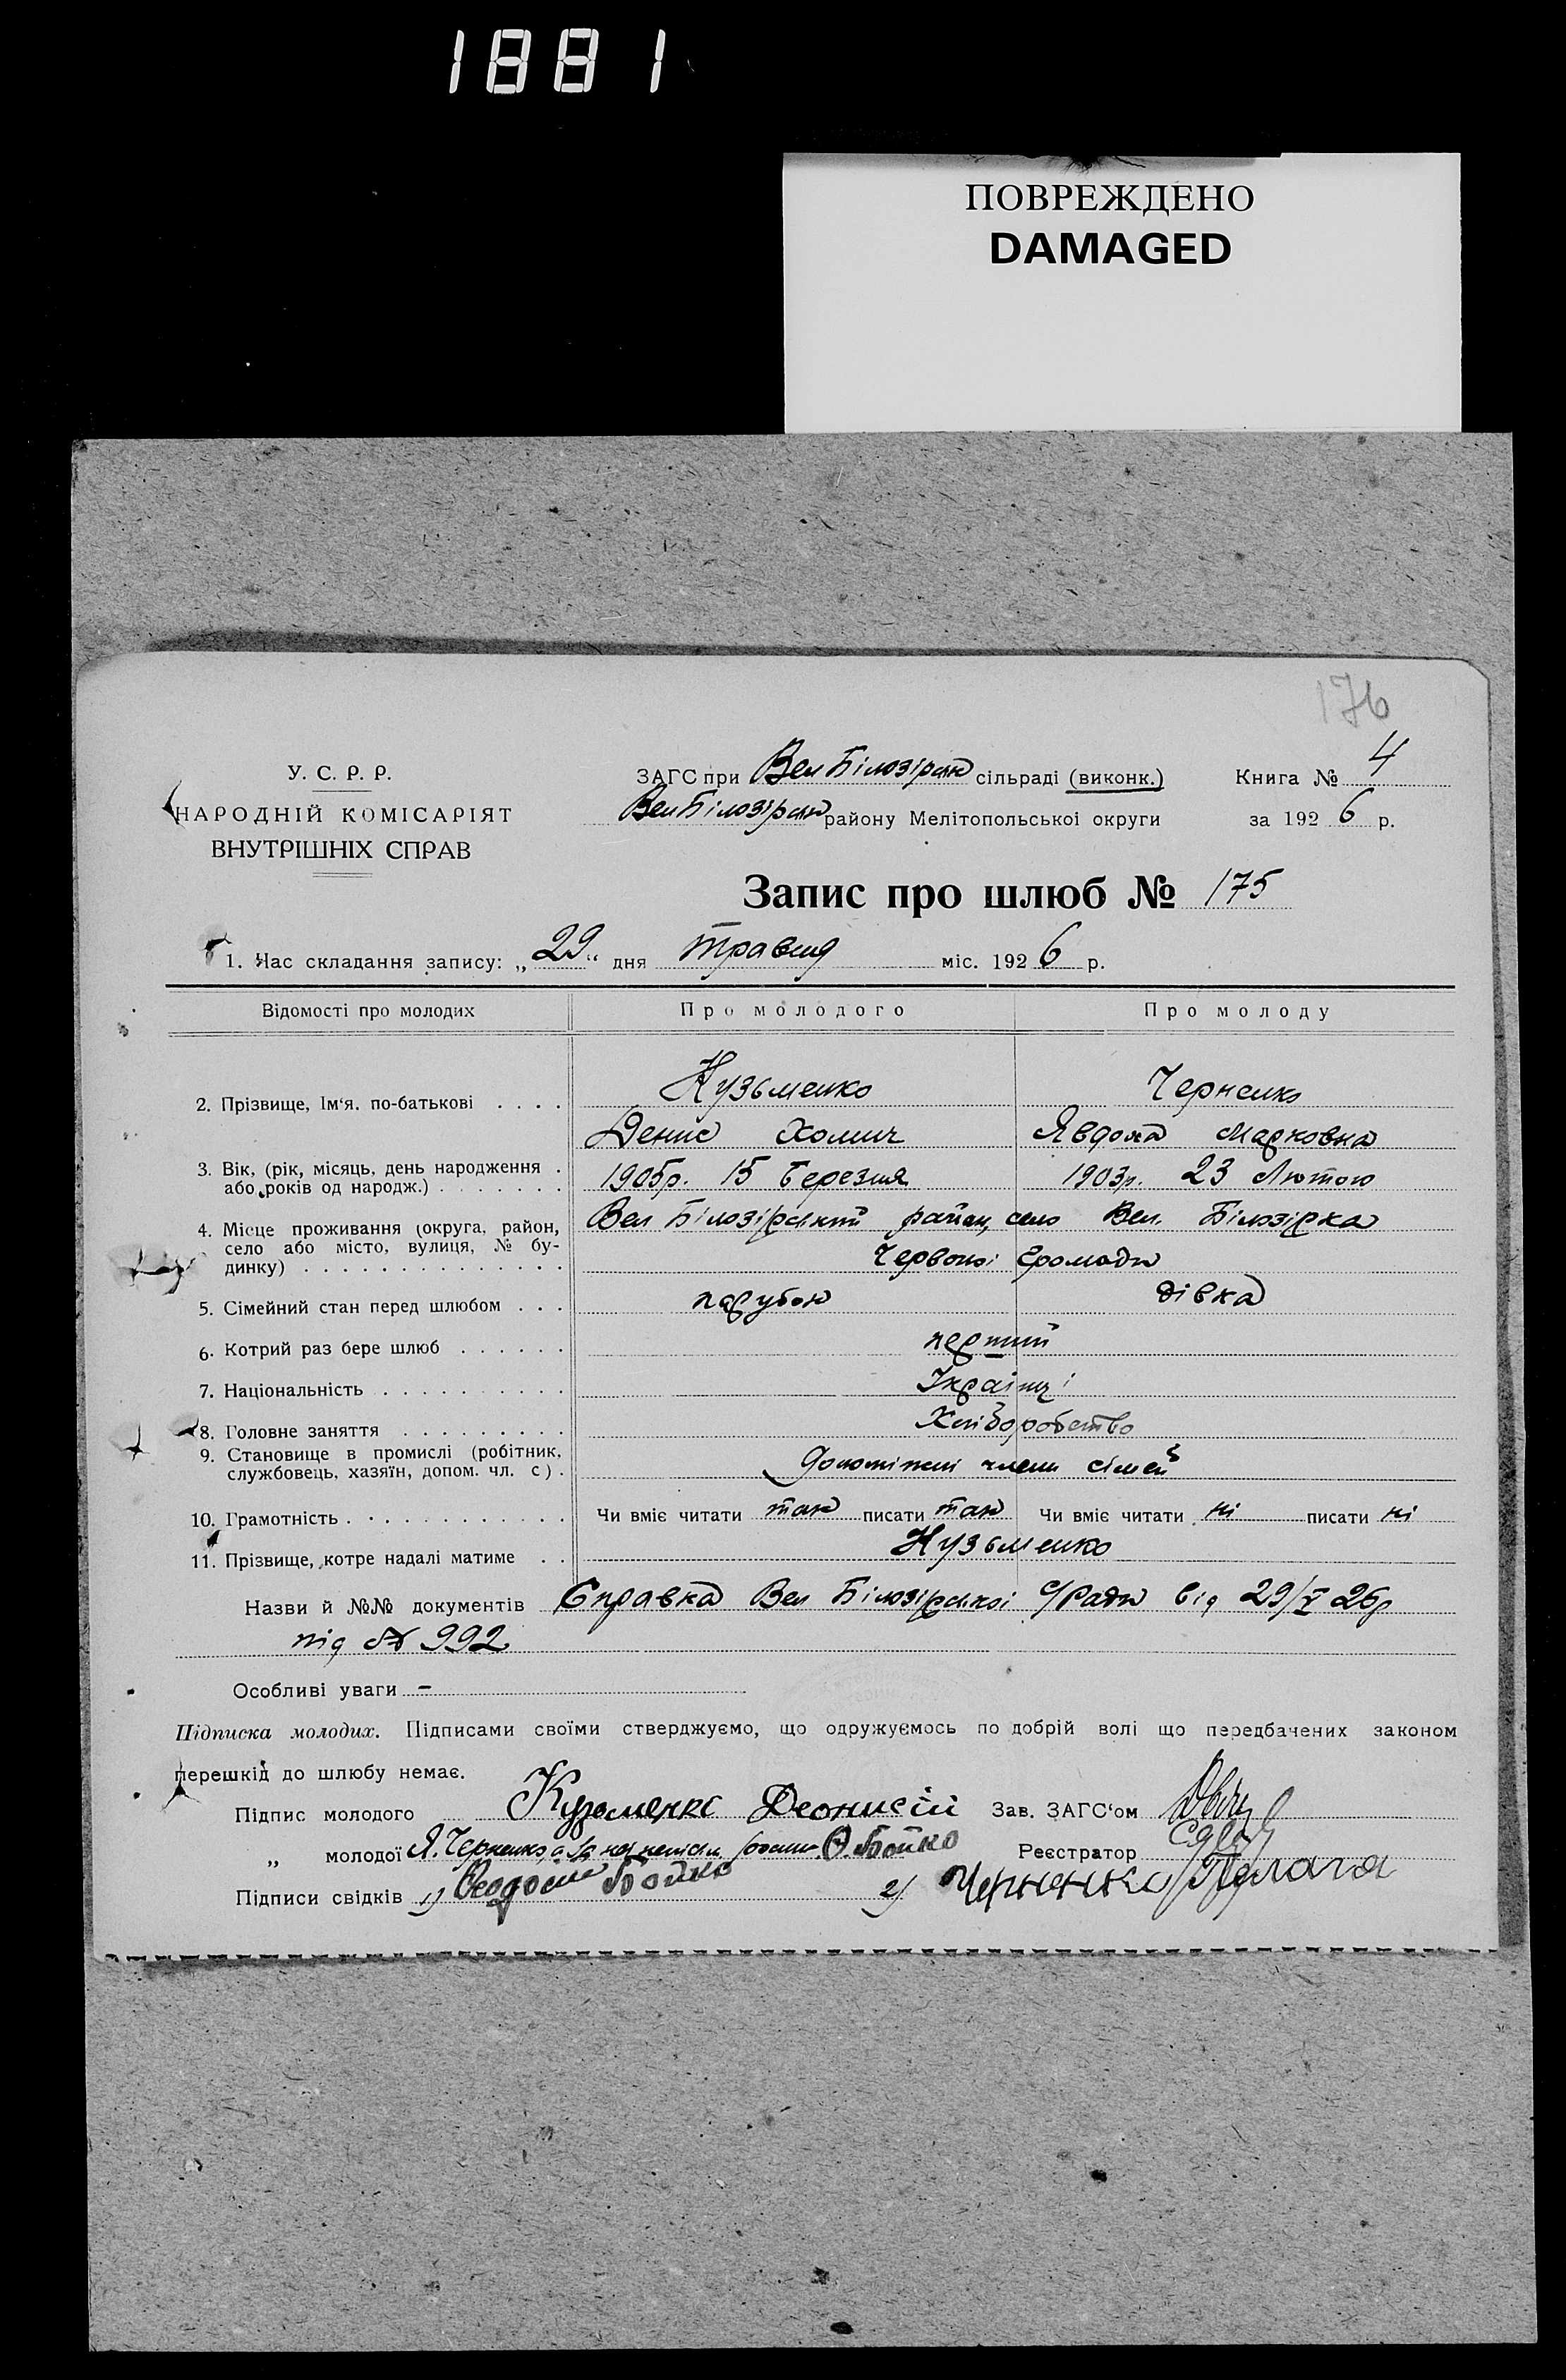 1881
ПОВРЕЖДЕНО
DAMAGED
176
У. С. Р. Р.
НАРОДНІЙ КОМІСАРІЯТ
ВНУТРІШНІХ СПРАВ
ЗАГС при Вел Білозірск сільраді (виконк.) Книга № 4
Вел Білозірск району Мелітопольської округи за 1926 р.
Запис про шлюб № 175
1. Час складання запису: „29“ дня травня міс. 1926 р.
Відомості про молодих Про молодого Про молоду
2. Прізвище, Ім‘я. по-батькові . . . . Кузьменко Черненко
Денис Хомич Явдоха Марковна
3. Вік, (рік, місяць, день народження .
або років од народж.) . . . . . . . 1905р. 15 Березня 1903р. 23 Лютого
4. Місце проживання (округа, район, Вел Білозірський район, село Вел. Білозірка
село або місто, вулиця, № бу-
динку) . . . . . . . . . . . . . . Червоної Громади
5. Сімейний стан перед шлюбом . . . парубок дівка
6. Котрий раз бере шлюб . . . . . . перший
7. Національність . . . . . . . . . . Українці
8. Головне заняття . . . . . . . . . Хліборобство
9. Становище в промислі (робітник,
службовець, хазяїн, допом. чл. с) . допоміжні члени сімей
10. Грамотність . . . . . . . . . . . Чи вміє читати так писати так Чи вміє читати ні писати ні
11. Прізвище, котре надалі матиме . . Кузьменко
Назви й №№ документів Справка Вел Білозірської с/Ради від 29/V 26р
під № 992
Особливі уваги –
Підписка молодих. Підписами своїми стверджуємо, що одружуємось по добрій волі що передбачених законом
перешкід до шлюбу немає.
Підпис молодого Кузьменко Деонисій Зав. ЗАГС‘ом
„ молодої Я. Черненко, а за неї Ѳ. Бойко Реєстратор
Підписи свідків 1) Ѳеодосій Бойко 2) Черненко Пелагея